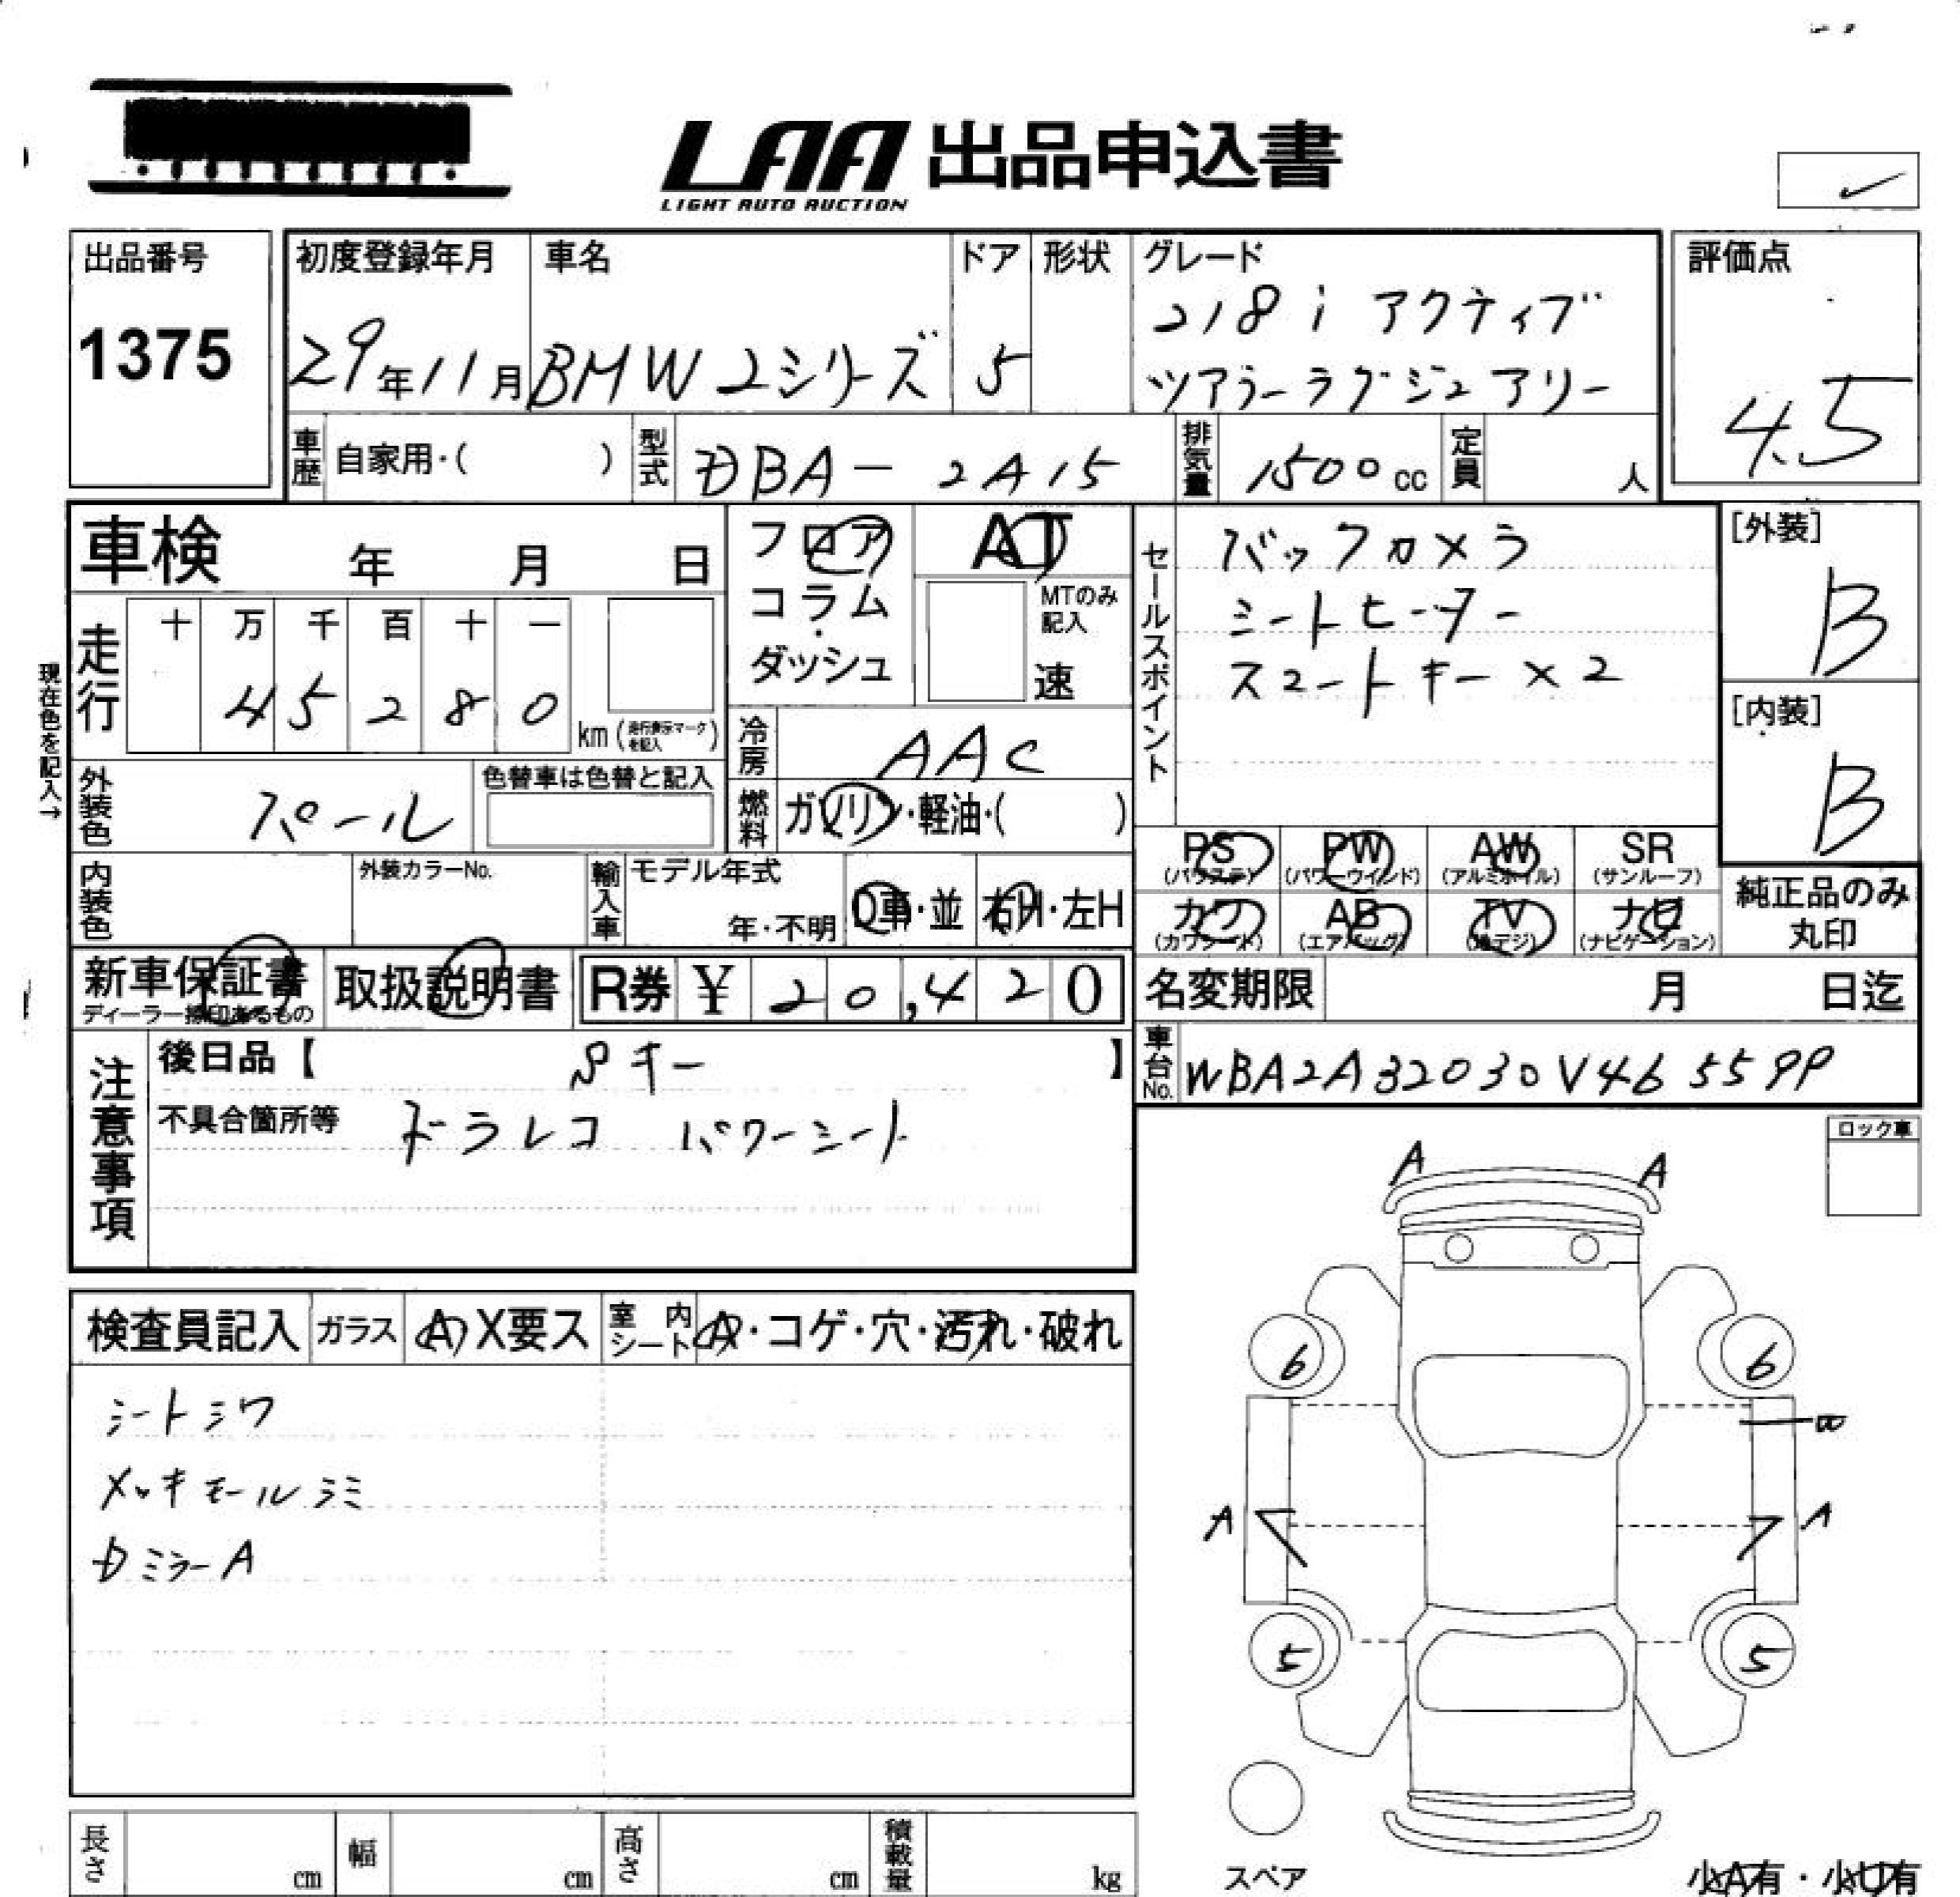 LAA 出品申込書
LIGHT AUTO AUCTION
出品番号
1375
初度登録年月
29年11月
車名
BMW 2シリーズ
ドア
5
形状
グレード
218i アクティブ
ツアラーラグジュアリー
評価点
4.5
車歴 自家用・( )
型式 DBA-2A15
排気量 1500cc
定員 人
車検 年 月 日
フロア
コラム
・
ダッシュ
AT
MTのみ記入
速
セールスポイント
バックカメラ
シートヒーター
スマートキー×2
[外装]
B
[内装]
B
現在色を記入→
走行
十 万 千 百 十 一
4 5 2 8 0 km (走行表示マークを記入)
冷房 AAC
外装色 パール
色替車は色替と記入
燃料 ガソリン・軽油・( )
内装色
外装カラーNo.
輸入車
モデル年式
年・不明
D車・並
右H・左H
PS (パワステ)
PW (パワーウインド)
AW (アルミホイル)
SR (サンルーフ)
カワ (カワシート)
AB (エアバッグ)
TV (地デジ)
ナビ (ナビゲーション)
純正品のみ
丸印
新車保証書
ディーラー捺印あるもの
取扱説明書
R券 ¥ 20,420
名変期限 月 日迄
注意事項
後日品【 Sキー 】
不具合箇所等 ドラレコ パワーシート
車台No. WBA2A32030V46
ロック車
A A
6 6
A A
5 5
スペア
小A有・小U有
検査員記入
ガラス A X要ス
室内シート A・コゲ・穴・汚れ・破れ
シートシワ
メッキモールシミ
Dミラー A
長さ cm
幅 cm
高さ cm
積載量 kg